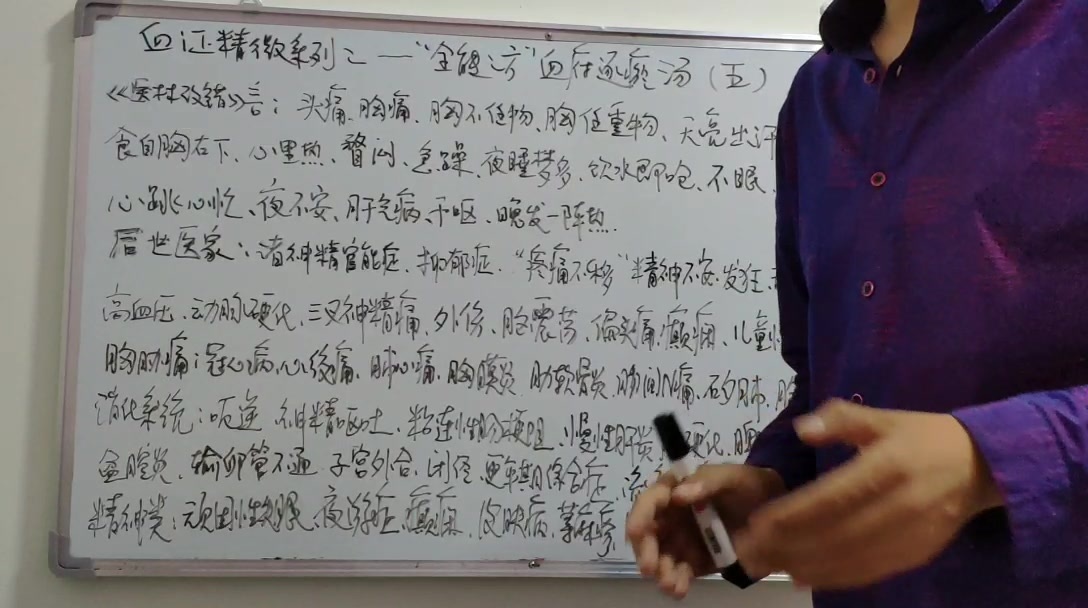 血证精微系列之一"全能之方"血府逐瘀汤（五）
《医林改错》言：头痛、胸痛、胸不任物、胸任重物、天亮出汗
食自胸右下、心里热、瞀闷、急躁、夜睡梦多、饮水即呛、不眠、
心跳心忙、夜不安、肝气病、干呕、晚发一阵热.
后世医家：诸神精官能症、抑郁症、"疼痛不移"精神不安、发狂、
高血压、动脉硬化、三叉神精痛、外伤、脑震荡、偏头痛、癫痫、儿童
胸肋痛：冠心病、心绞痛、肺心痛、胸膜炎、肋软骨炎、肋间N痛、矽肺、胸
消化系统：呃逆、神精呕吐、粘连性肠梗阻、慢性肝炎、硬化、
盆腔炎、输卵管不通、子宫外合、闭经、更年期综合症、流
精神类：顽固性失眠、夜游症、癫痫、皮肤病、荨麻疹、